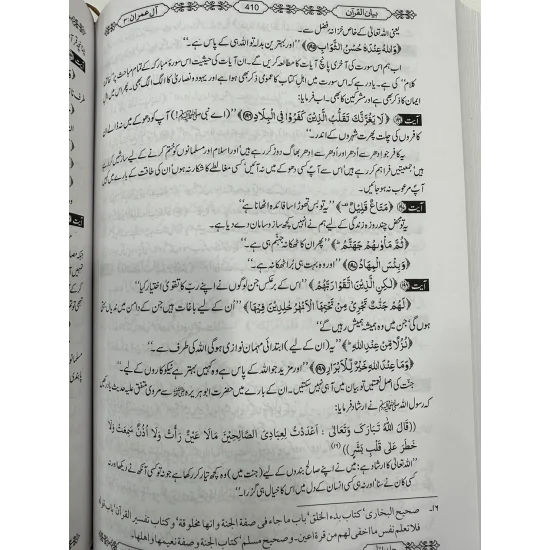 آل عمران ۳ 410 بیان القرآن
یعنی اللہ تعالیٰ کے خاص خزانۂ فضل سے۔
﴿وَاللّٰهُ عِنْدَهٗ حُسْنُ الثَّوَابِ ﴿۱۹۵﴾﴾ ’’اور بہترین بدلہ تو اللہ ہی کے پاس ہے۔‘‘
اب ہم اس سورت کی آخری پانچ آیات کا مطالعہ کریں گے۔ ان آیات کی حیثیت اس سورۂ مبارکہ کے تمام مباحث پر ’’خاتمۂ
کلام‘‘ کی ہے۔ یاد رہے کہ اس سورت میں اہل کتاب کا عمومی ذکر بھی ہوا ہے اور یہود و نصاریٰ کا الگ الگ بھی۔ پھر اس میں اہل
ایمان کا ذکر بھی ہے اور مشرکین کا بھی۔ اب فرمایا:
آیت ۱۹۶ ﴿لَا يَغُرَّنَّكَ تَقَلُّبُ الَّذِيْنَ كَفَرُوْا فِي الْبِلَادِ ﴿۱۹۶﴾﴾ ’’(اے نبی ﷺ!) آپ کو دھوکے میں نہ ڈالے ان
کافروں کی چلت پھرت شہروں کے اندر۔‘‘
یہ کافر جو ادھر سے اُدھر اور اُدھر سے ادھر بھاگ دوڑ کر رہے ہیں اور اسلام اور مسلمانوں کو ختم کرنے کے لیے سازشیں کر رہے
ہیں، جمعیتیں فراہم کر رہے ہیں، اس سے آپؐ کسی دھوکے میں نہ آئیں، کسی مغالطے کا شکار نہ ہوں، ان کی طاقت کے بارے میں
آپؐ مرعوب نہ ہو جائیں۔
آیت ۱۹۷ ﴿مَتَاعٌ قَلِيْلٌ﴾ ’’یہ تو بس تھوڑا سا فائدہ اٹھانا ہے‘‘
یہ تو محض چند روزہ زندگی کے لیے ہم نے انہیں کچھ ساز و سامان دے دیا ہے۔
﴿ثُمَّ مَاْوٰىهُمْ جَهَنَّمُ﴾ ’’پھر ان کا ٹھکانہ جہنم ہی ہے۔‘‘
﴿وَبِئْسَ الْمِهَادُ ﴿۱۹۷﴾﴾ ’’اور وہ بہت ہی بُرا ٹھکانہ ہے۔‘‘
آیت ۱۹۸ ﴿لٰكِنِ الَّذِيْنَ اتَّقَوْا رَبَّهُمْ﴾ ’’اس کے برعکس جن لوگوں نے اپنے ربّ کا تقویٰ اختیار کیا‘‘
﴿لَهُمْ جَنّٰتٌ تَجْرِيْ مِنْ تَحْتِهَا الْاَنْهٰرُ خٰلِدِيْنَ فِيْهَا﴾ ’’اُن کے لیے باغات ہیں جن کے دامن میں ندیاں بہتی
ہوں گی، جن میں وہ ہمیشہ ہمیش رہیں گے‘‘
﴿نُزُلًا مِّنْ عِنْدِ اللّٰهِ﴾ ’’یہ (ان کے لیے) ابتدائی مہمان نوازی ہو گی اللہ کی طرف سے۔‘‘
﴿وَمَا عِنْدَ اللّٰهِ خَيْرٌ لِّلْاَبْرَارِ ﴿۱۹۸﴾﴾ ’’اور مزید جو اللہ کے پاس ہے وہ کہیں بہتر ہے نیکو کاروں کے لیے۔‘‘
جنت کی اصل نعمتیں تو بیان میں آ ہی نہیں سکتیں۔ ان کے بارے میں حضرت ابو ہریرہ ؓ سے مروی متفق علیہ حدیث یاد کریں
کہ رسول اللہ ﷺ نے ارشاد فرمایا:
((قَالَ اللّٰهُ تَبَارَكَ وَتَعَالٰى: اَعْدَدْتُ لِعِبَادِيَ الصَّالِحِيْنَ مَا لَا عَيْنٌ رَأَتْ وَلَا اُذُنٌ سَمِعَتْ وَلَا
خَطَرَ عَلٰى قَلْبِ بَشَرٍ)) (۱۶)
’’اللہ تعالیٰ کا ارشاد ہے: میں نے اپنے صالح بندوں کے لیے (جنت میں) وہ کچھ تیار کر رکھا ہے جو نہ تو کسی آنکھ نے دیکھا اور نہ
کسی کان نے سنا، اور نہ ہی کسی انسان کے دل میں اس کا خیال ہی گزرا۔‘‘
۱۶۔ صحيح البخارى، كتاب بدء الخلق، باب ما جاء فى صفة الجنة وانها مخلوقة، و كتاب تفسير القرآن، باب قوله
فلا تعلم نفس ما اخفى لهم من قرة اعين۔ و صحيح مسلم، كتاب الجنة و صفة نعيمها و اهلها